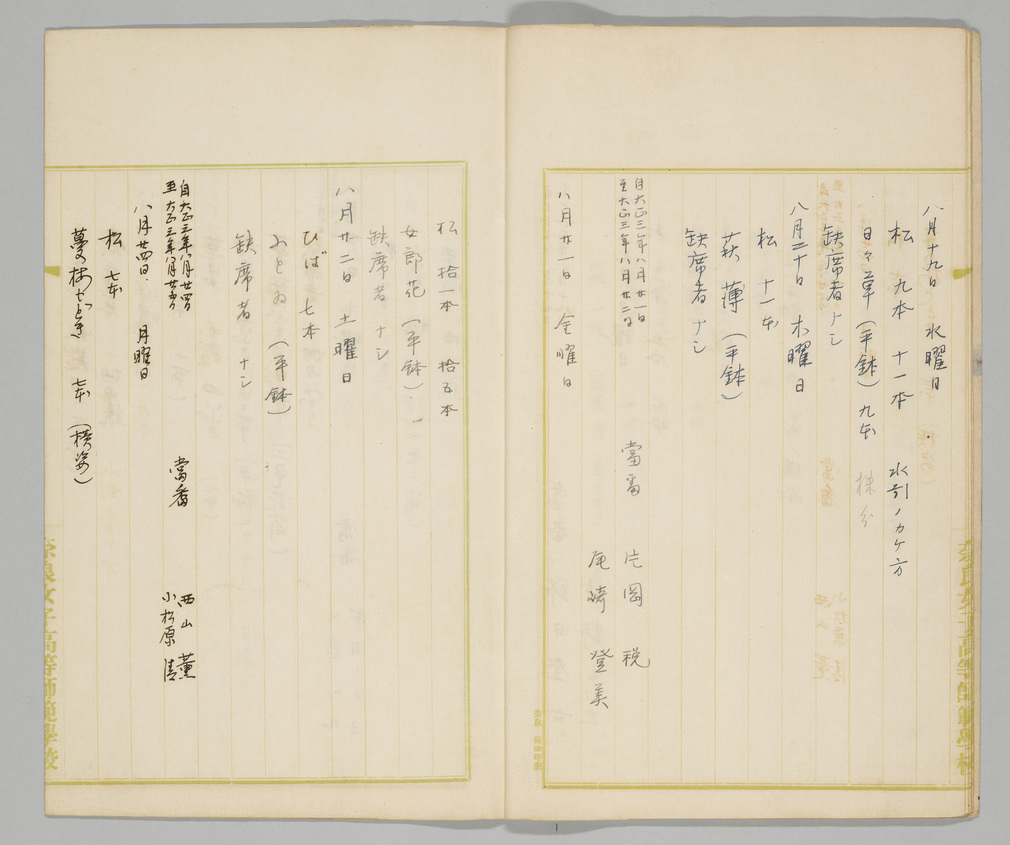 八月十九日 水曜日
松 九本 十一本 水引ノカケ方
日々草(平鉢)九本 株分
缺席者ナシ
八月二十日 木曜日
松 十一本
萩 薄(平鉢)
缺席者ナシ
自大正三年八月廿一日
至大正三年八月廿二日
當番 片岡 税
尾崎 登美
八月廿一日 金曜日
松 拾一本 拾五本
女郎花(平鉢)
缺席者 ナシ
八月廿二日 土曜日
ひば 七本
ふとゐ(平鉢)
缺席者 ナシ
自大正三年八月廿四日
至大正三年八月廿五日
當番 西山 薫
小松原 清
八月廿四日 月曜日
松 七本
蔓梅もどき 七本(横姿)
奈良女子高等師範學校